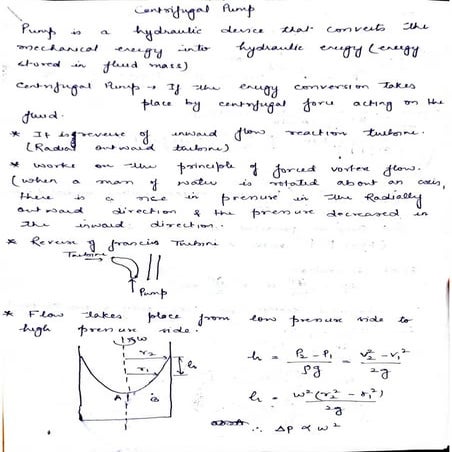 Centrifugal Pump
Pump is a hydraulic device that converts the
mechanical energy into hydraulic energy (energy
stored in fluid mass)
Centrifugal Pump → If the energy conversion takes
place by centrifugal force acting on the
fluid.
* It is reverse of inward flow reaction turbine.
(Radial outward turbine)
* works on the principle of forced vortex flow.
(when a man of water is rotated about an axis,
there is a rise in pressure in the Radially
outward direction & the pressure decreased in
the inward direction.
* Reverse of francis Turbine
Turbine →
Pump
* Flow takes place from low pressure side to
high pressure side.
ω
r₂
r₁
h
A
B
h = P₂ - P₁ / ρg = V₂² - V₁² / 2g
h = ω²(r₂² - r₁²) / 2g
∴ ΔP ∝ ω²